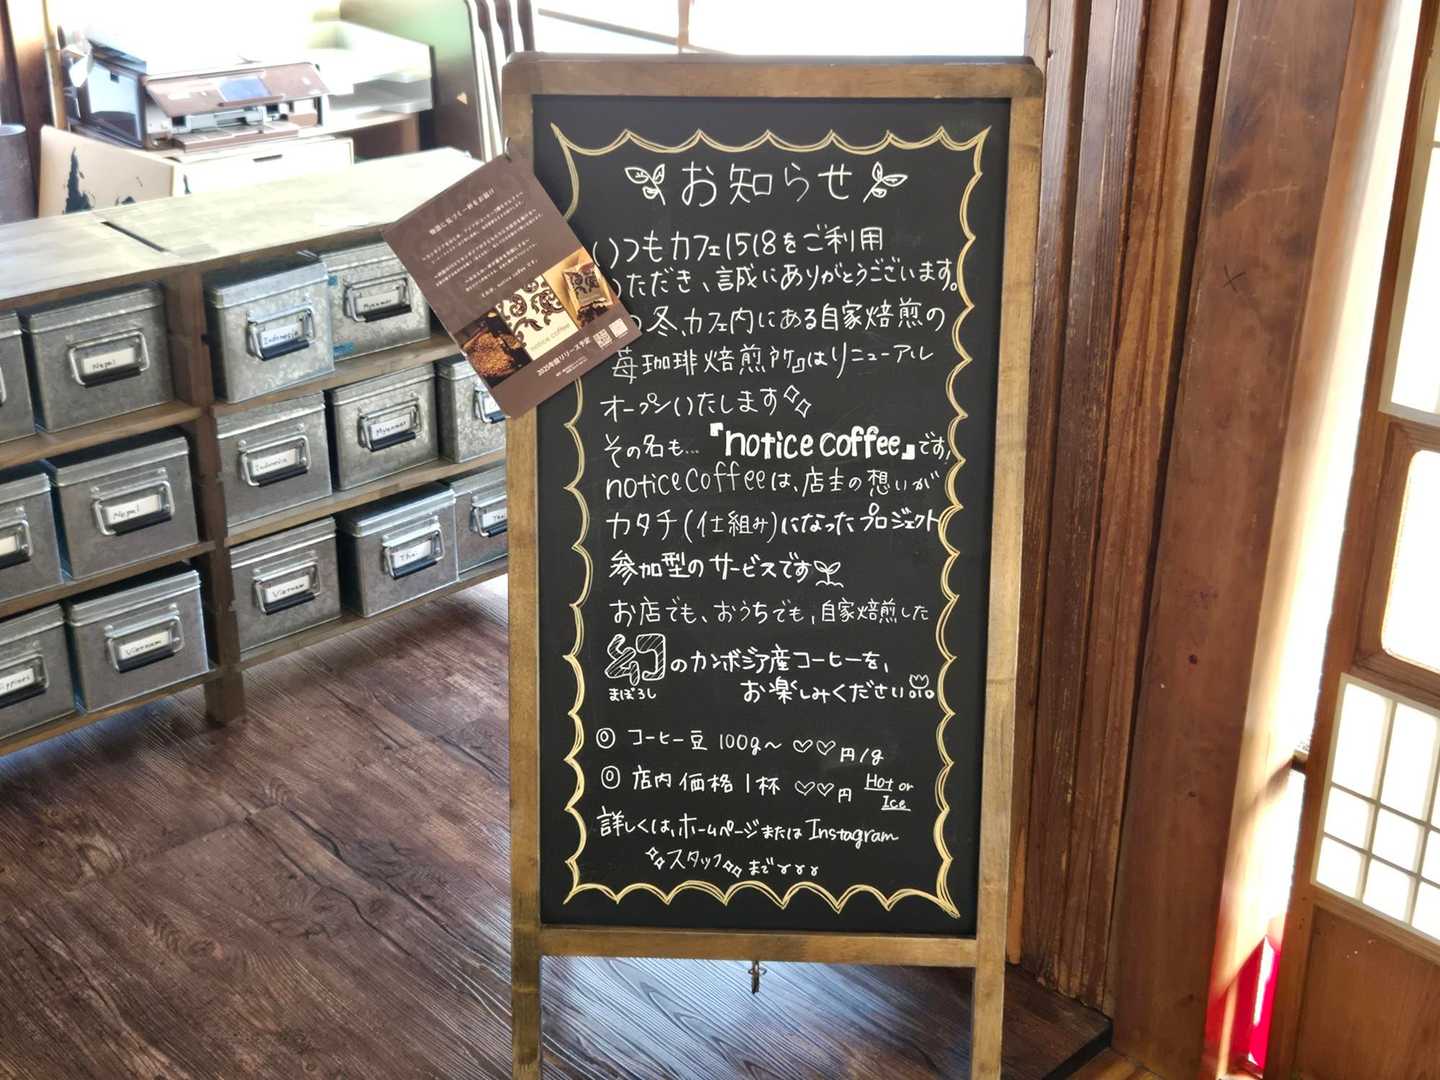 お知らせ
いつもカフェ1518をご利用
ただき、誠にありがとうございます。
冬、カフェ内にある自家焙煎の
苺珈琲焙煎所』はリニューアル
オープンいたします
その名も…『notice coffee』です!
notice coffeeは、店主の想いが
カタチ(仕組み)になったプロジェクト
参加型のサービスです
お店でも、おうちでも、自家焙煎した
幻のカンボジア産コーヒーを、
まぼろし
お楽しみください
◎ コーヒー豆 100g〜 ♡♡円/g
◎ 店内価格 1杯 ♡♡円 Hot or Ice
詳しくは、ホームページまたは Instagram
スタッフまで
notice coffee
2025年秋リリース予定
Nepal
Indonesia
Myanmar
Nepal
Indonesia
Myanmar
Vietnam
Vietnam
Thai